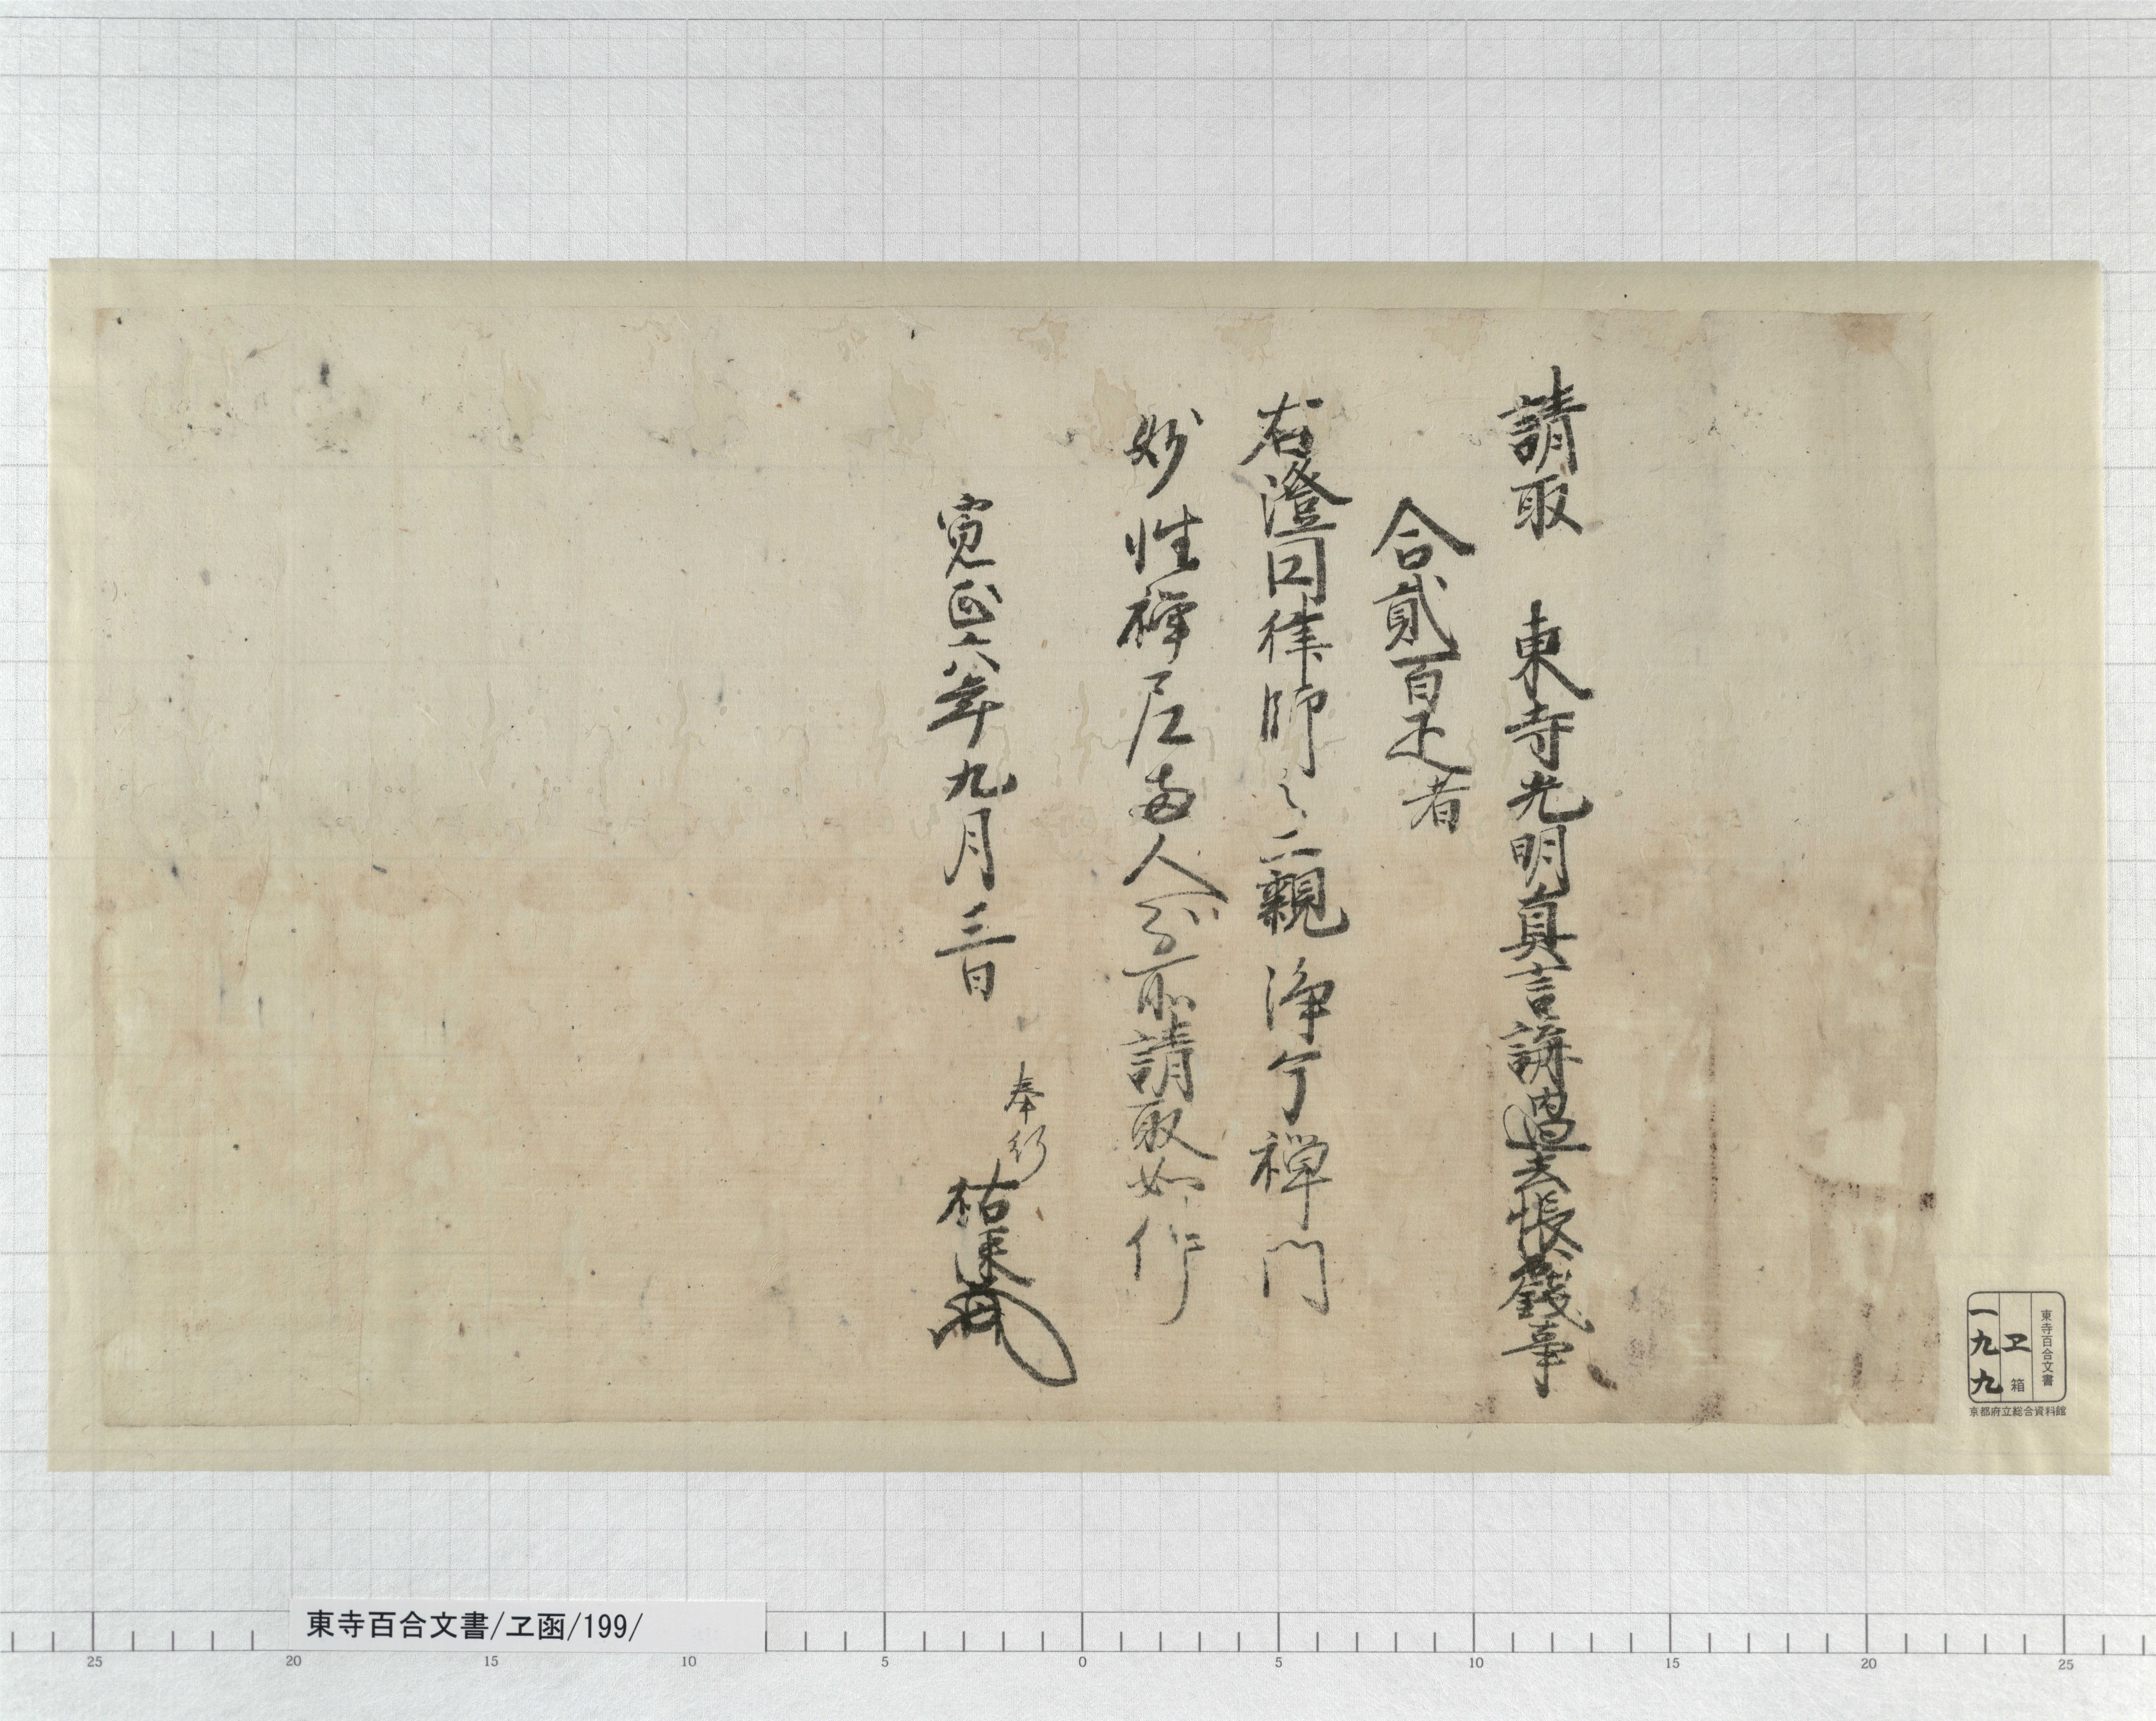 請取　東寺光明真言講過去帳銭事
合貳百疋者
右澄円律師之二親浄了禅門
妙性禅尼両人分所請取如件
寛正六年九月三日
奉行
祐未
東寺百合文書
ヱ箱
一九九
京都府立総合資料館
東寺百合文書/ヱ函/199/
25 20 15 10 5 0 5 10 15 20 25